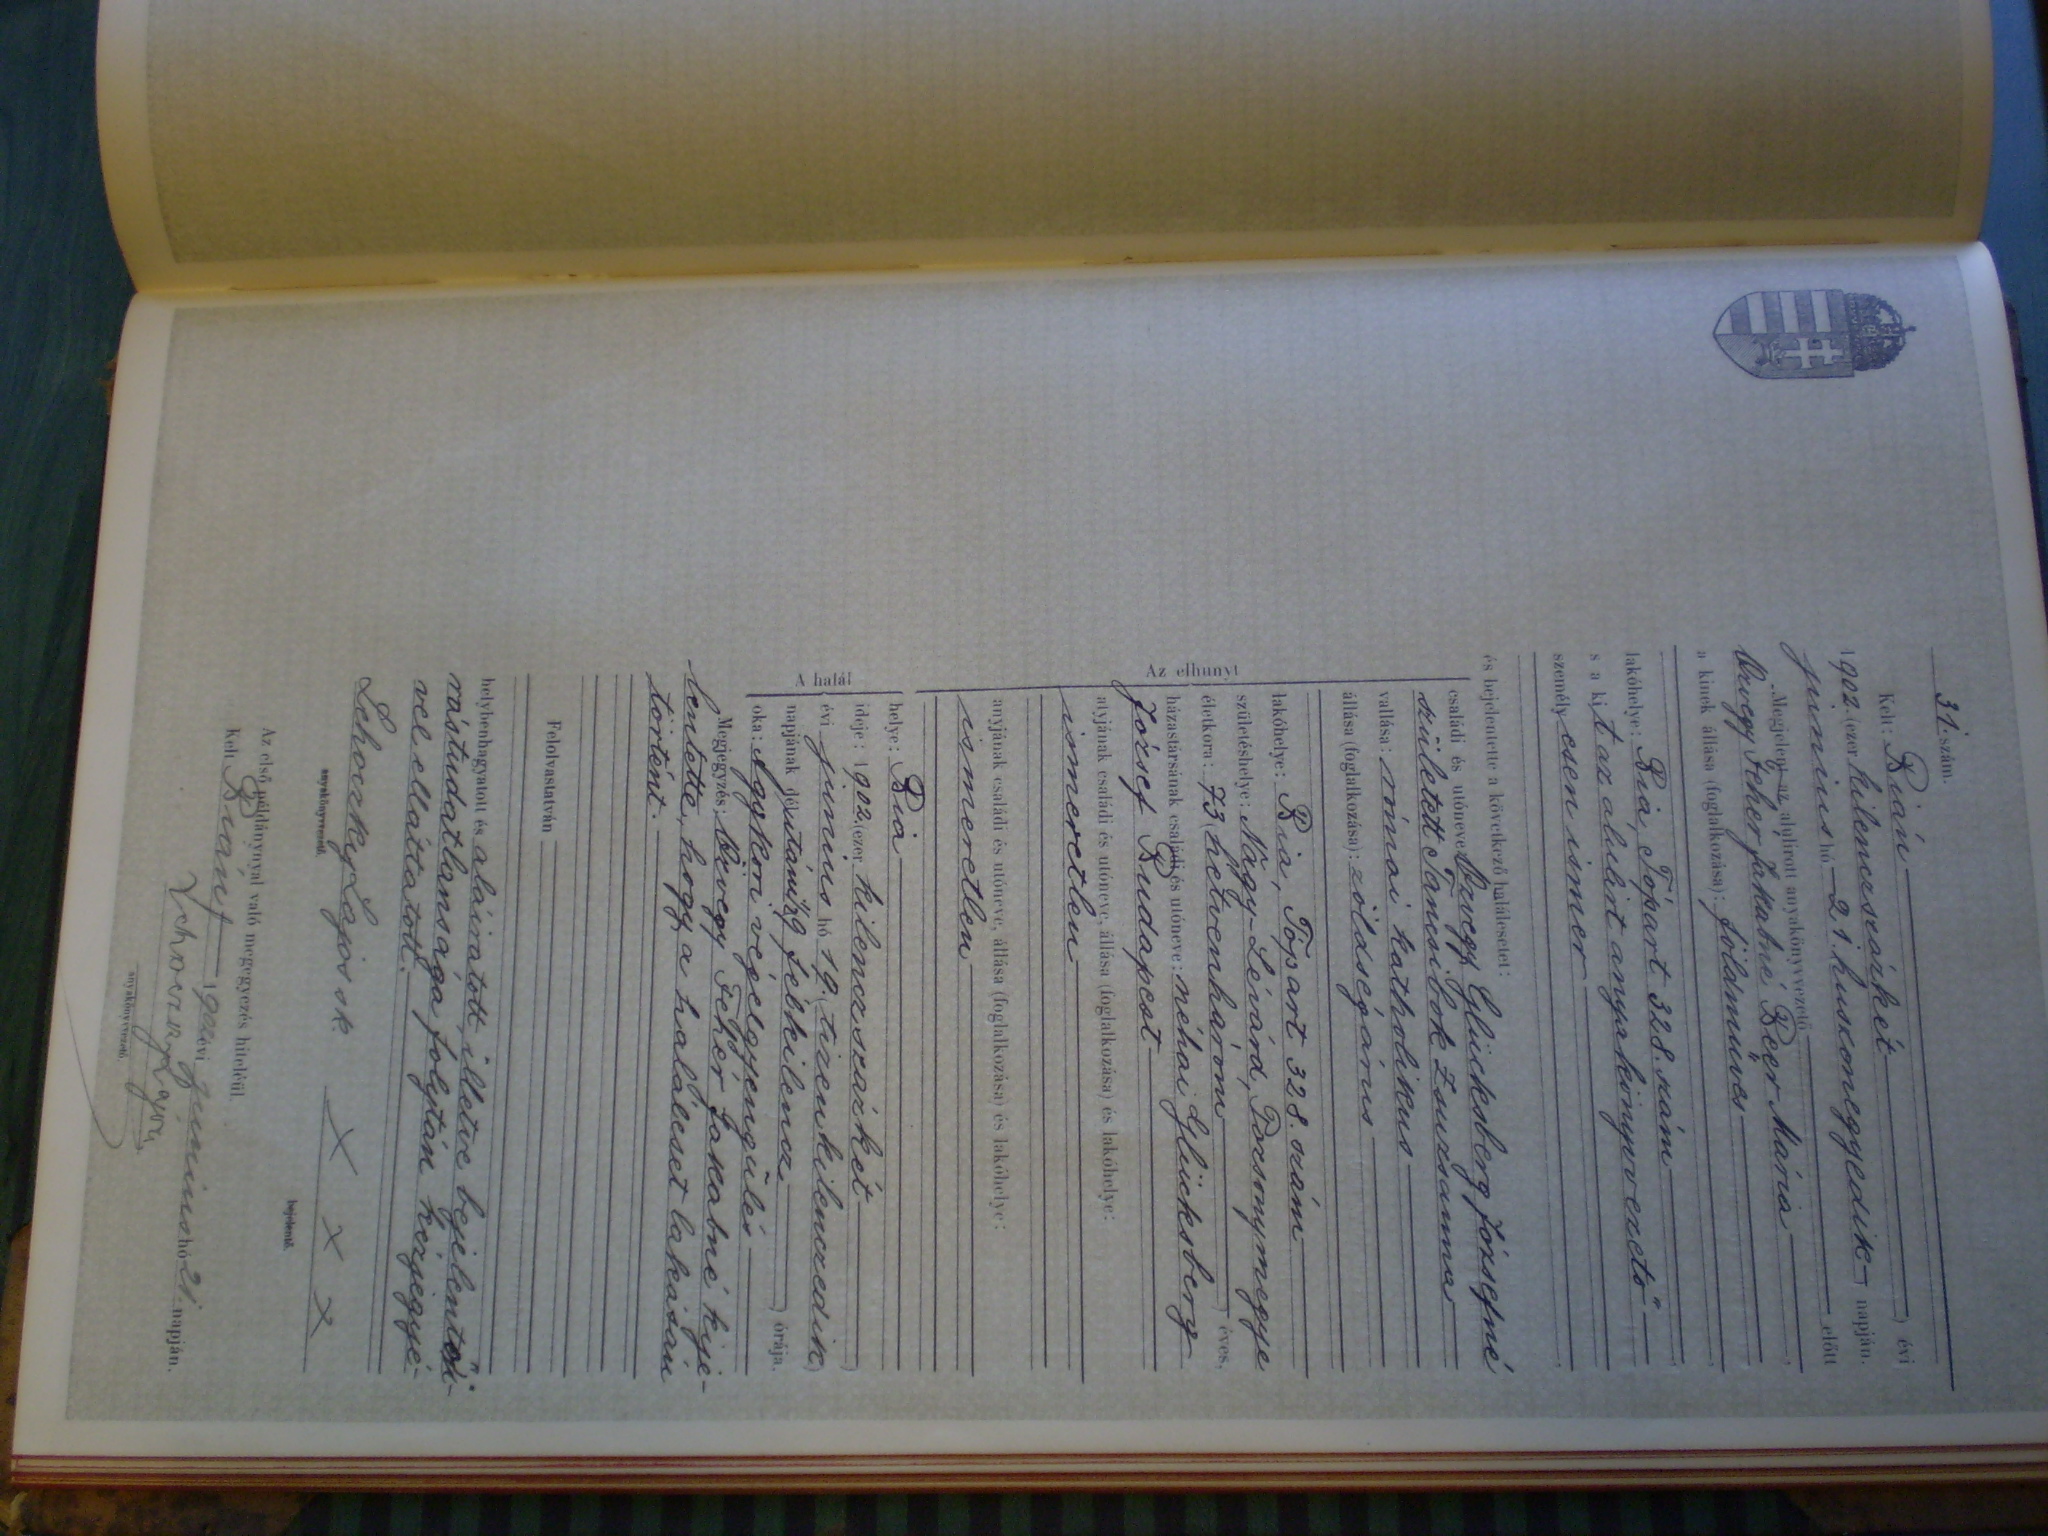 31. szám.
Kelt: Bián ) évi
1902 (ezer kilenczszázkét
junius hó 21. huszonegyedik napján.
Megjelent az alulírott anyakönyvvezető előtt
özvegy Fehér Jakabné Beer Mária
a kinek állása (foglalkozása): földműves
lakóhelye: Bia, Tópart 328. szám
s a kit az alulirt anyakönyvvezető
személyesen ismer
és bejelentette a következő halálesetet:
családi és utóneve: özvegy Glücksberg Józsefné
született Zsuzsanna
vallása: római katholikus
állása (foglalkozása): zöldségárus
Az elhunyt
lakóhelye: Bia, Tópart 328. szám
születéshelye: Nagy-Lévárd, Pozsonymegye
életkora: 73 (hetvenhárom ) éves,
házastársának családi és utóneve: néhai Glücksberg
József Budapest
atyjának családi és utóneve, állása (foglalkozása) és lakóhelye:
ismeretlen
anyjának családi és utóneve, állása (foglalkozása) és lakóhelye:
ismeretlen
A halál
helye: Bia
ideje: 1902. (ezer kilenczszázkét )
évi junius hó 19. (tizenkilenczedik)
napjának délutáni ½9 félkilencz ) órája.
oka: Aggkori végelgyengülés
Megjegyzés: özvegy Fehér Jakabné kije-
lentette, hogy a haláleset lakásán
történt.
Felolvastatván
helybenhagyatott és aláiratott, illetve bejelentő ü-
rástudatlansága folytán kézjegyé-
vel elláttatott.
Lehoczky Lajos sk x x x
anyakönyvvezető. bejelentő.
Az első példánynyal való megegyezés hiteléül.
Kelt Bián, évi junius hó 21. napján.
Lehoczky Lajos
anyakönyvvezető.